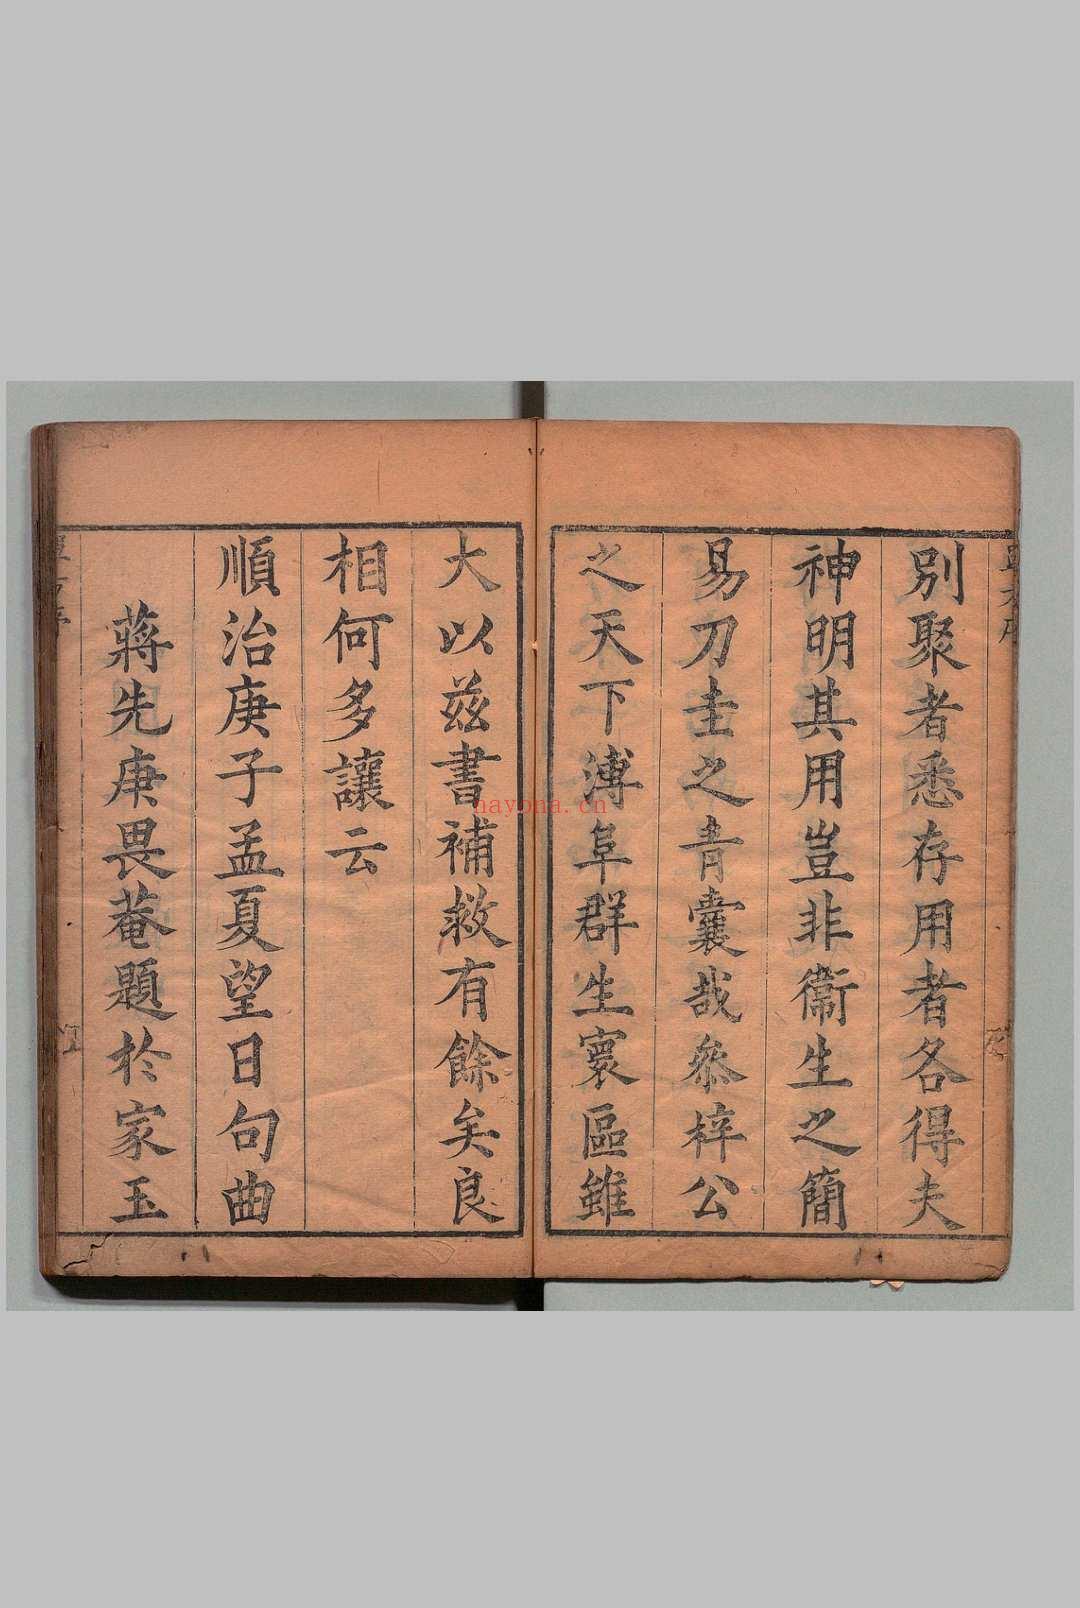 別聚者悉存用者各得夫
神明其用豈非衞生之簡
易刀圭之青囊哉叅梓公
之天下溥阜群生寰區雖
大以兹書補救有餘矣良
相何多讓云
順治庚子孟夏望日句曲
蔣先庚畏菴題於家玉
nayona.cn